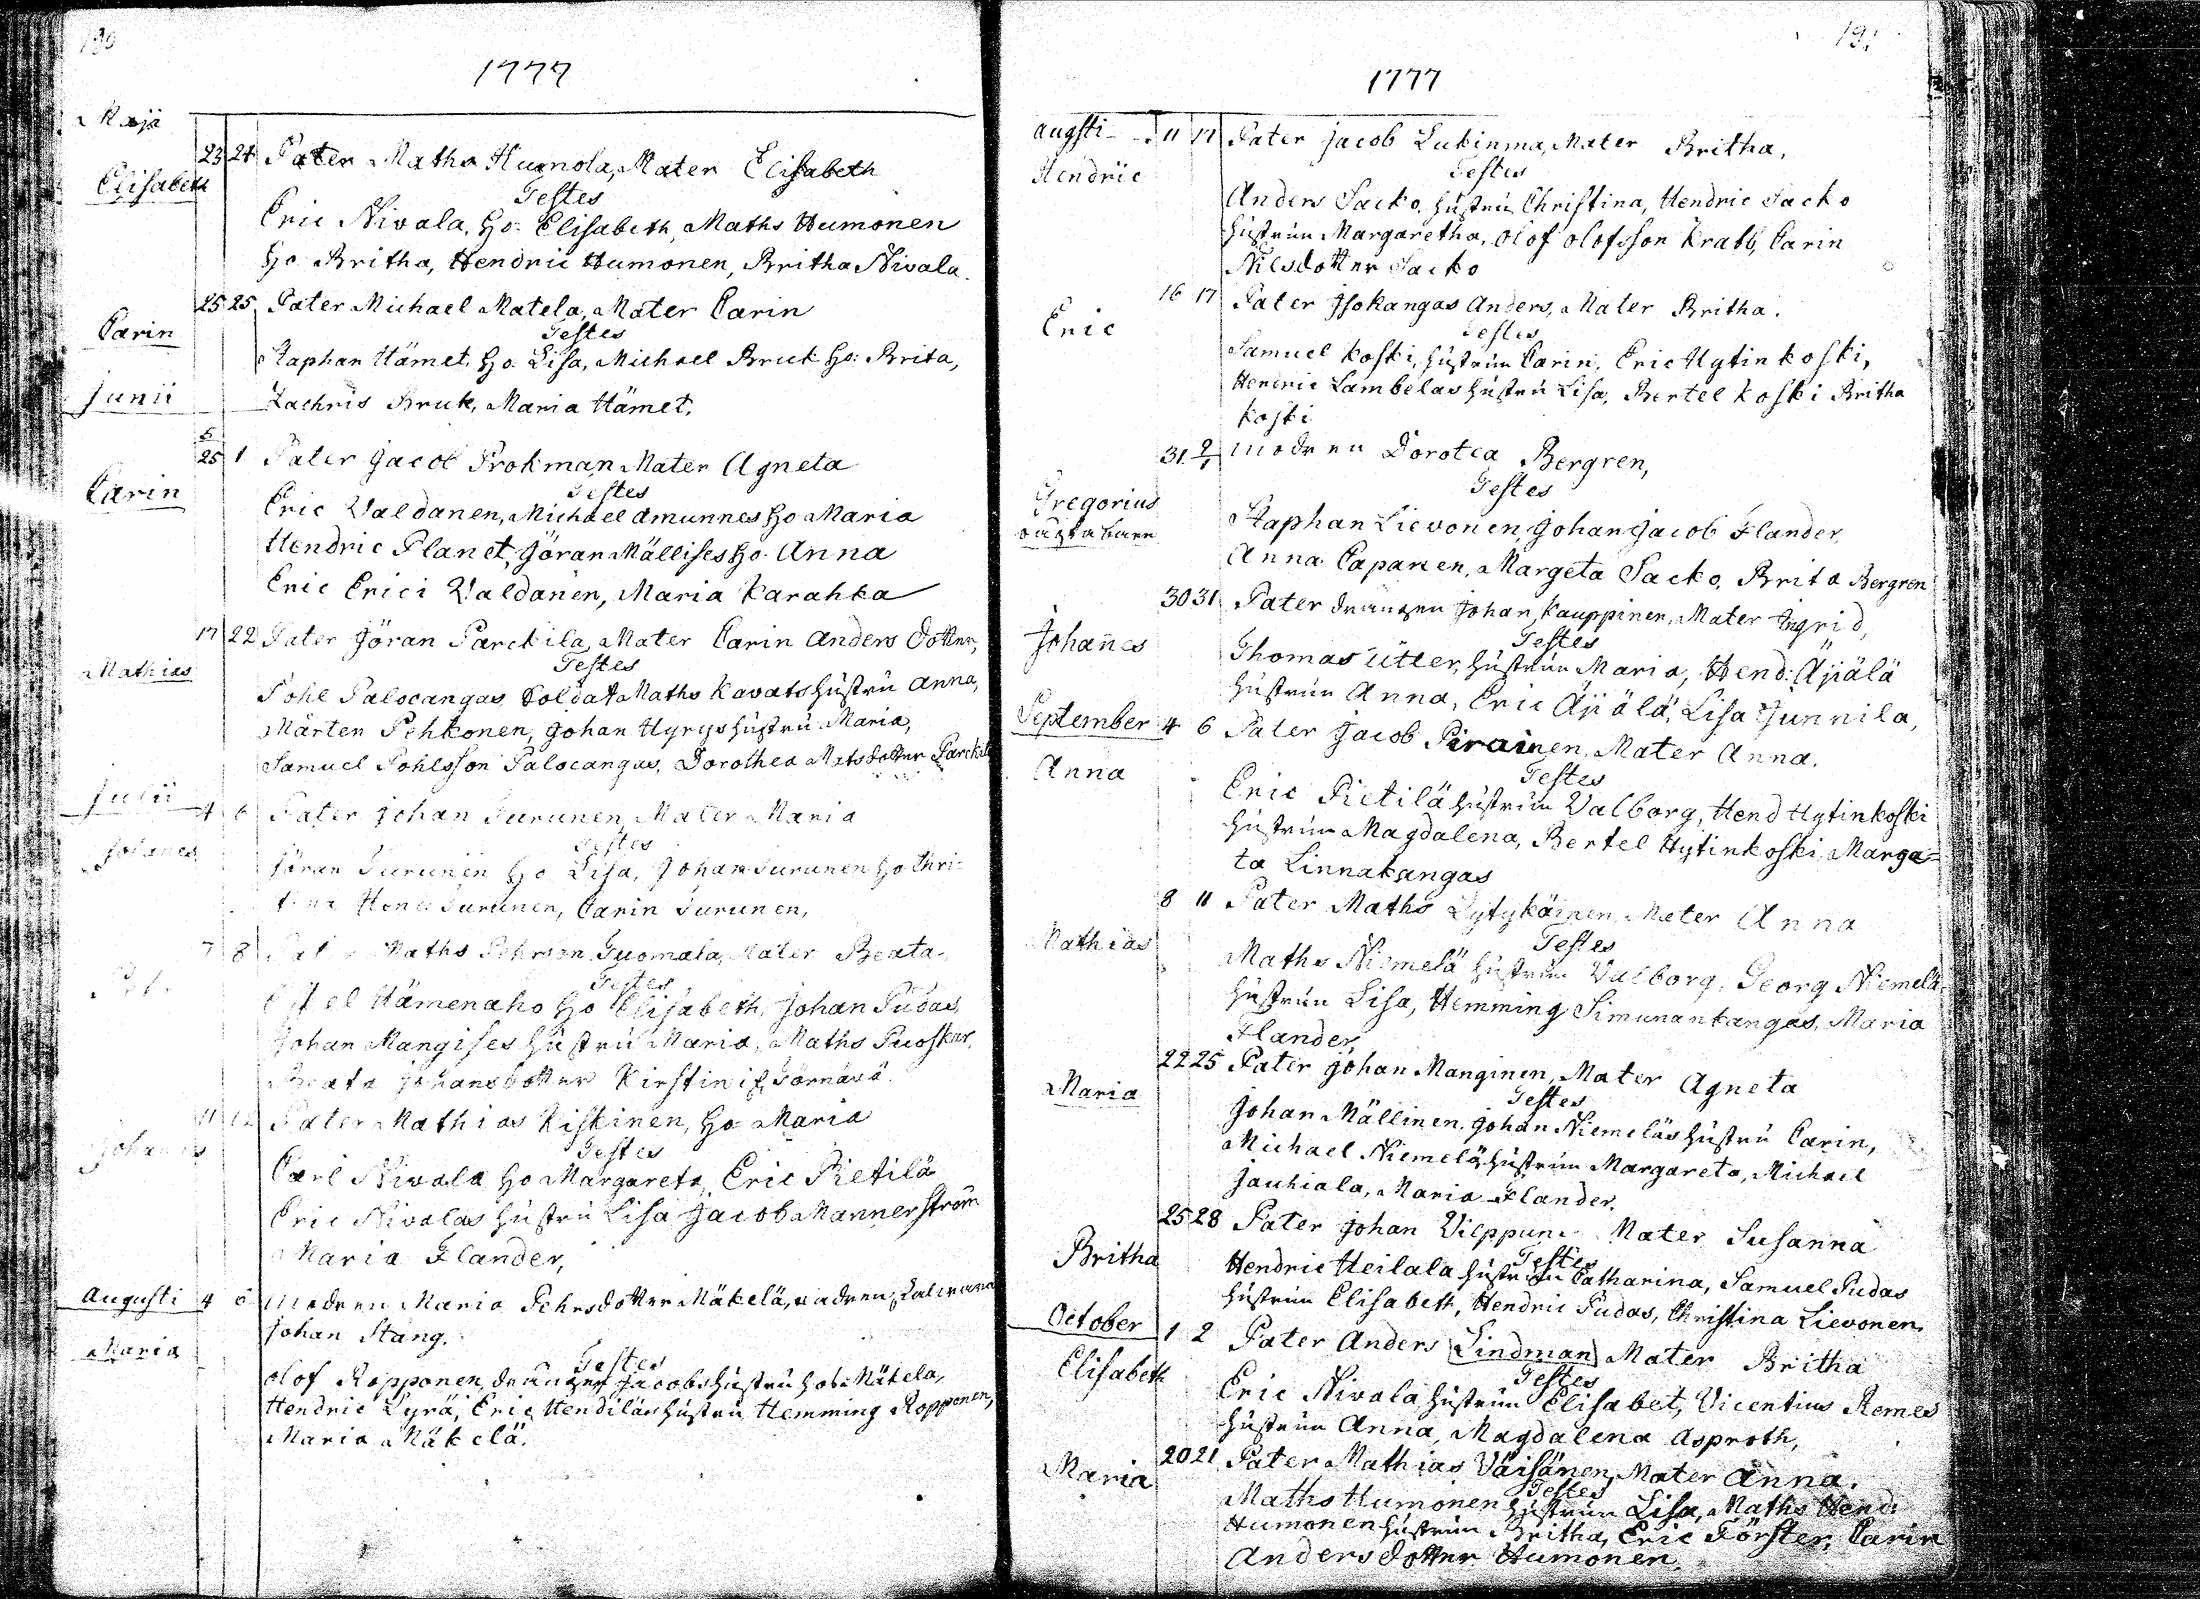 190
1777
Maji
23 24 Pater Maths Humola, Mater Elisabeth
Elisabeth
Testes
Eric Nivala, Ho: Elisabeth, Maths Humonen
Ho Britha, Hendric Humonen, Britha Nivala
25 25 Pater Michael Matela, Mater Carin
Carin
Testes
Staphan Hämet, Ho. Lisa, Michael Bruk Ho: Brita,
Junii
Zachris Bruk, Maria Hämet.
5
25 1 Pater Jacob Prokman Mater Agneta
Carin
Testes
Eric Valdanen, Michael Amunnes Ho Maria
Hendric Planet, Jöran Mällises Ho. Anna
Eric Erici Valdanen, Maria Karahka
17 22 Pater Jöran Parckila, Mater Carin Anders dotter,
Mathias
Testes
Pohl Palocangas, Soldat Maths Kavats hustru Anna,
Mårten Pehkonen, Johan Hyrys hustru Maria,
Samuel Pohlsson Palocangas, Dorothea Matsdotter Parckila
Julii
4 6 Pater Johan Turunen, Mater Maria
Johanes
Testes
Jöran Turunen Ho Lisa, Johan Turunen Ho Chri-
Hend Turunen, Carin Turunen,
7 8 Maths Pehrson Tuomala, Mater Beata
Testes
Hämenaho Ho Elisabeth, Johan Pudas,
Johan Mangises hustru Maria, Maths Puoskar,
Beata Johansdotter
11 12 Pater Mathias Kiskinen, Ho Maria
Johannes
Testes
Carl Nivala Ho Margareta, Eric Pietilä
Eric Nivalas hustru Lisa Jacob Mannerström
Maria Flander,
Augusti 4 modren Maria Pehrsdotter Mäkelä,
Johan Stang.
Maria
Testes
Olof Ropponen, drängen Jacobs hustru hos Mäkela,
Hendric Lyrä, Eric Hendiläs hustru Hemming Ropponen,
Maria Mäkelä.
191
1777
Augsti 11 17 Pater Jacob Lukinma, Mater Britha,
Hendric
Testes
Anders Sacko, hustrun Christina, Hendric Sacko
hustrun Margaretha, Olof Olofsson Krabb, Carin
Nilsdotter Sacko
16 17 Pater Isokangas Anders, Mater Britha.
Eric
Testes
Samuel Koski, hustrun Carin, Eric Hytinkoski,
Hendric Lambelas hustru Lisa, Bertel Koski Britha
Koski
31 modren Dorotea Bergren,
Gregorius
oäkta barn
Testes
Staphan Lievonen, Johan Jacob Flander,
Anna Capanen, Margeta Sacko, Brita Bergren
30 31 Pater drängen Johan Kauppinen, Mater Ingrid,
Johannes
Testes
Thomas Utter, hustrun Maria, Hend: Äjiälä
hustrun Anna, Eric Äjiälä, Lisa Junnila,
September 4 6 Pater Jacob Pirainen, Mater Anna.
Anna
Testes
Eric Pietilä hustrun Valborg, Hend Hytinkoski
hustrun Magdalena, Bertel Hytinkoski, Marga=
ta Linnakangas
8 11 Pater Maths Lytykäinen, Mater Anna
Mathias
Testes
Maths Niemelä hustrun Valborg, Georg Niemelä
hustrun Lisa, Hemming Simunankangas, Maria
Flander,
22 25 Pater Johan Manginen, Mater Agneta
Maria
Testes
Johan Mällinen, Johan Niemeläs hustru Carin,
Michael Niemelä, hustrun Margareta, Michael
Jauhiala, Maria Flander.
25 28 Pater Johan Vilppun. Mater Susanna
Britha
Testes
Hendric Heilala hustrun Catharina, Samuel Pudas
hustrun Elisabeth, Hendric Pudas, Christina Lievonen,
October 1 2 Pater Anders Lindman Mater Britha
Elisabeth
Testes
Eric Nivala hustrun Elisabet, Vicentius Remes
hustrun Anna, Magdalena Asproth,
20 21 Pater Mathias Väisänen, Mater Anna.
Maria
Testes
Maths Humonen hustrun Lisa, Maths Hend:
Humonen hustrun Britha, Eric Förster, Carin
Anders dotter Humonen.